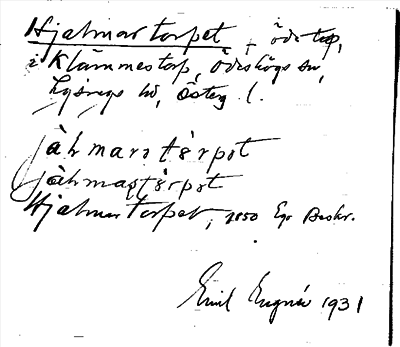 Hjalmartorpet, ödetp,
i Klämmestorp, Ödeshögs sn,
Lysings hd, Österg. l.
jàhmarstòrpət
jàhmaștòrpət
Hjalmartorpet, 1850 Egr Beskr.
Emil 1931